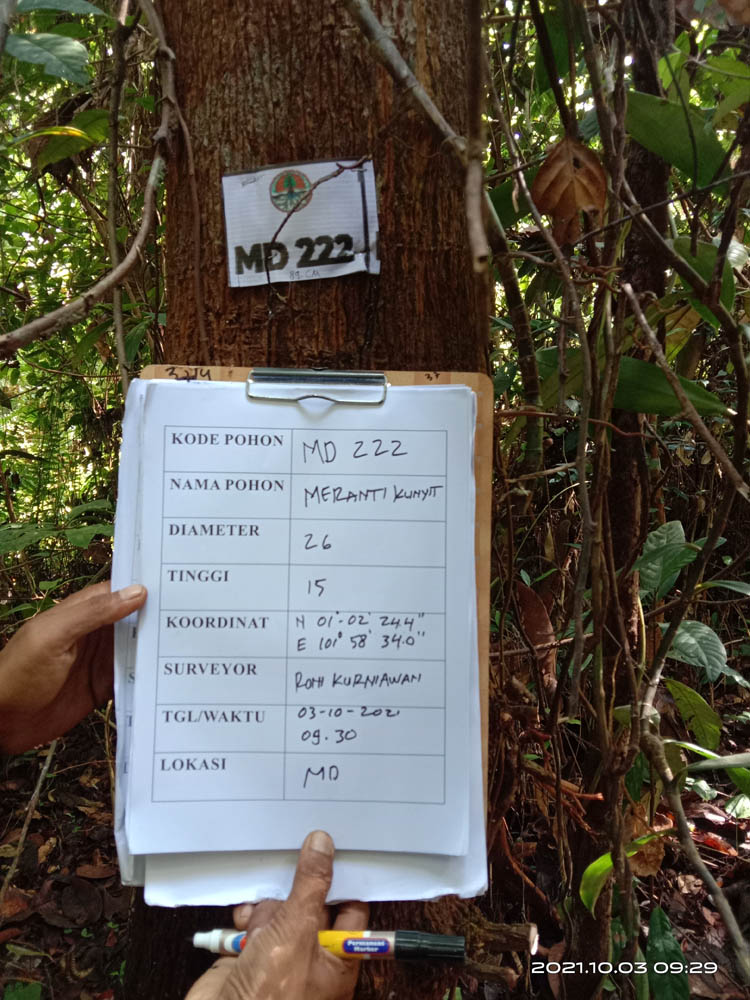 MD 222
87 CM
KODE POHON MD 222
NAMA POHON MERANTI KUNYIT
DIAMETER 26
TINGGI 15
KOORDINAT N 01° 02' 24.4"
E 101° 58' 34.0"
SURVEYOR ROMI KURNIAWAN
TGL/WAKTU 03-10-2021
09.30
LOKASI MD
Permanent
Marker
2021.10.03 09:29